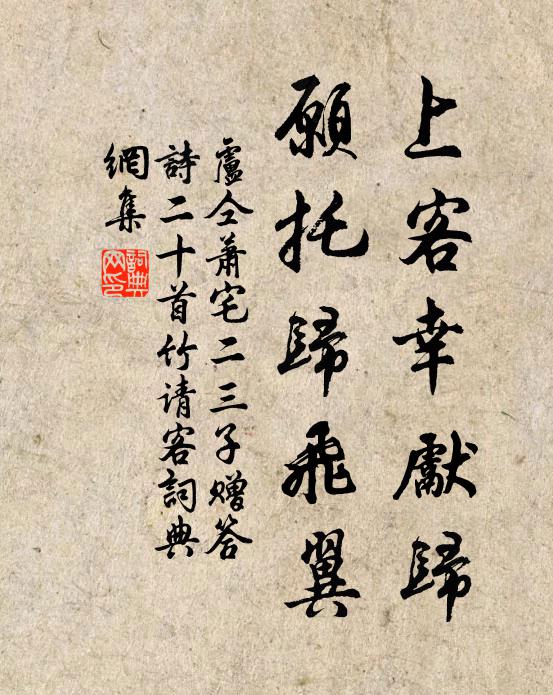 上客幸獻歸
願托歸飛翼
盧仝蕭宅二三子赠答
詩二十首竹请客詞典
網集
詞典
网印